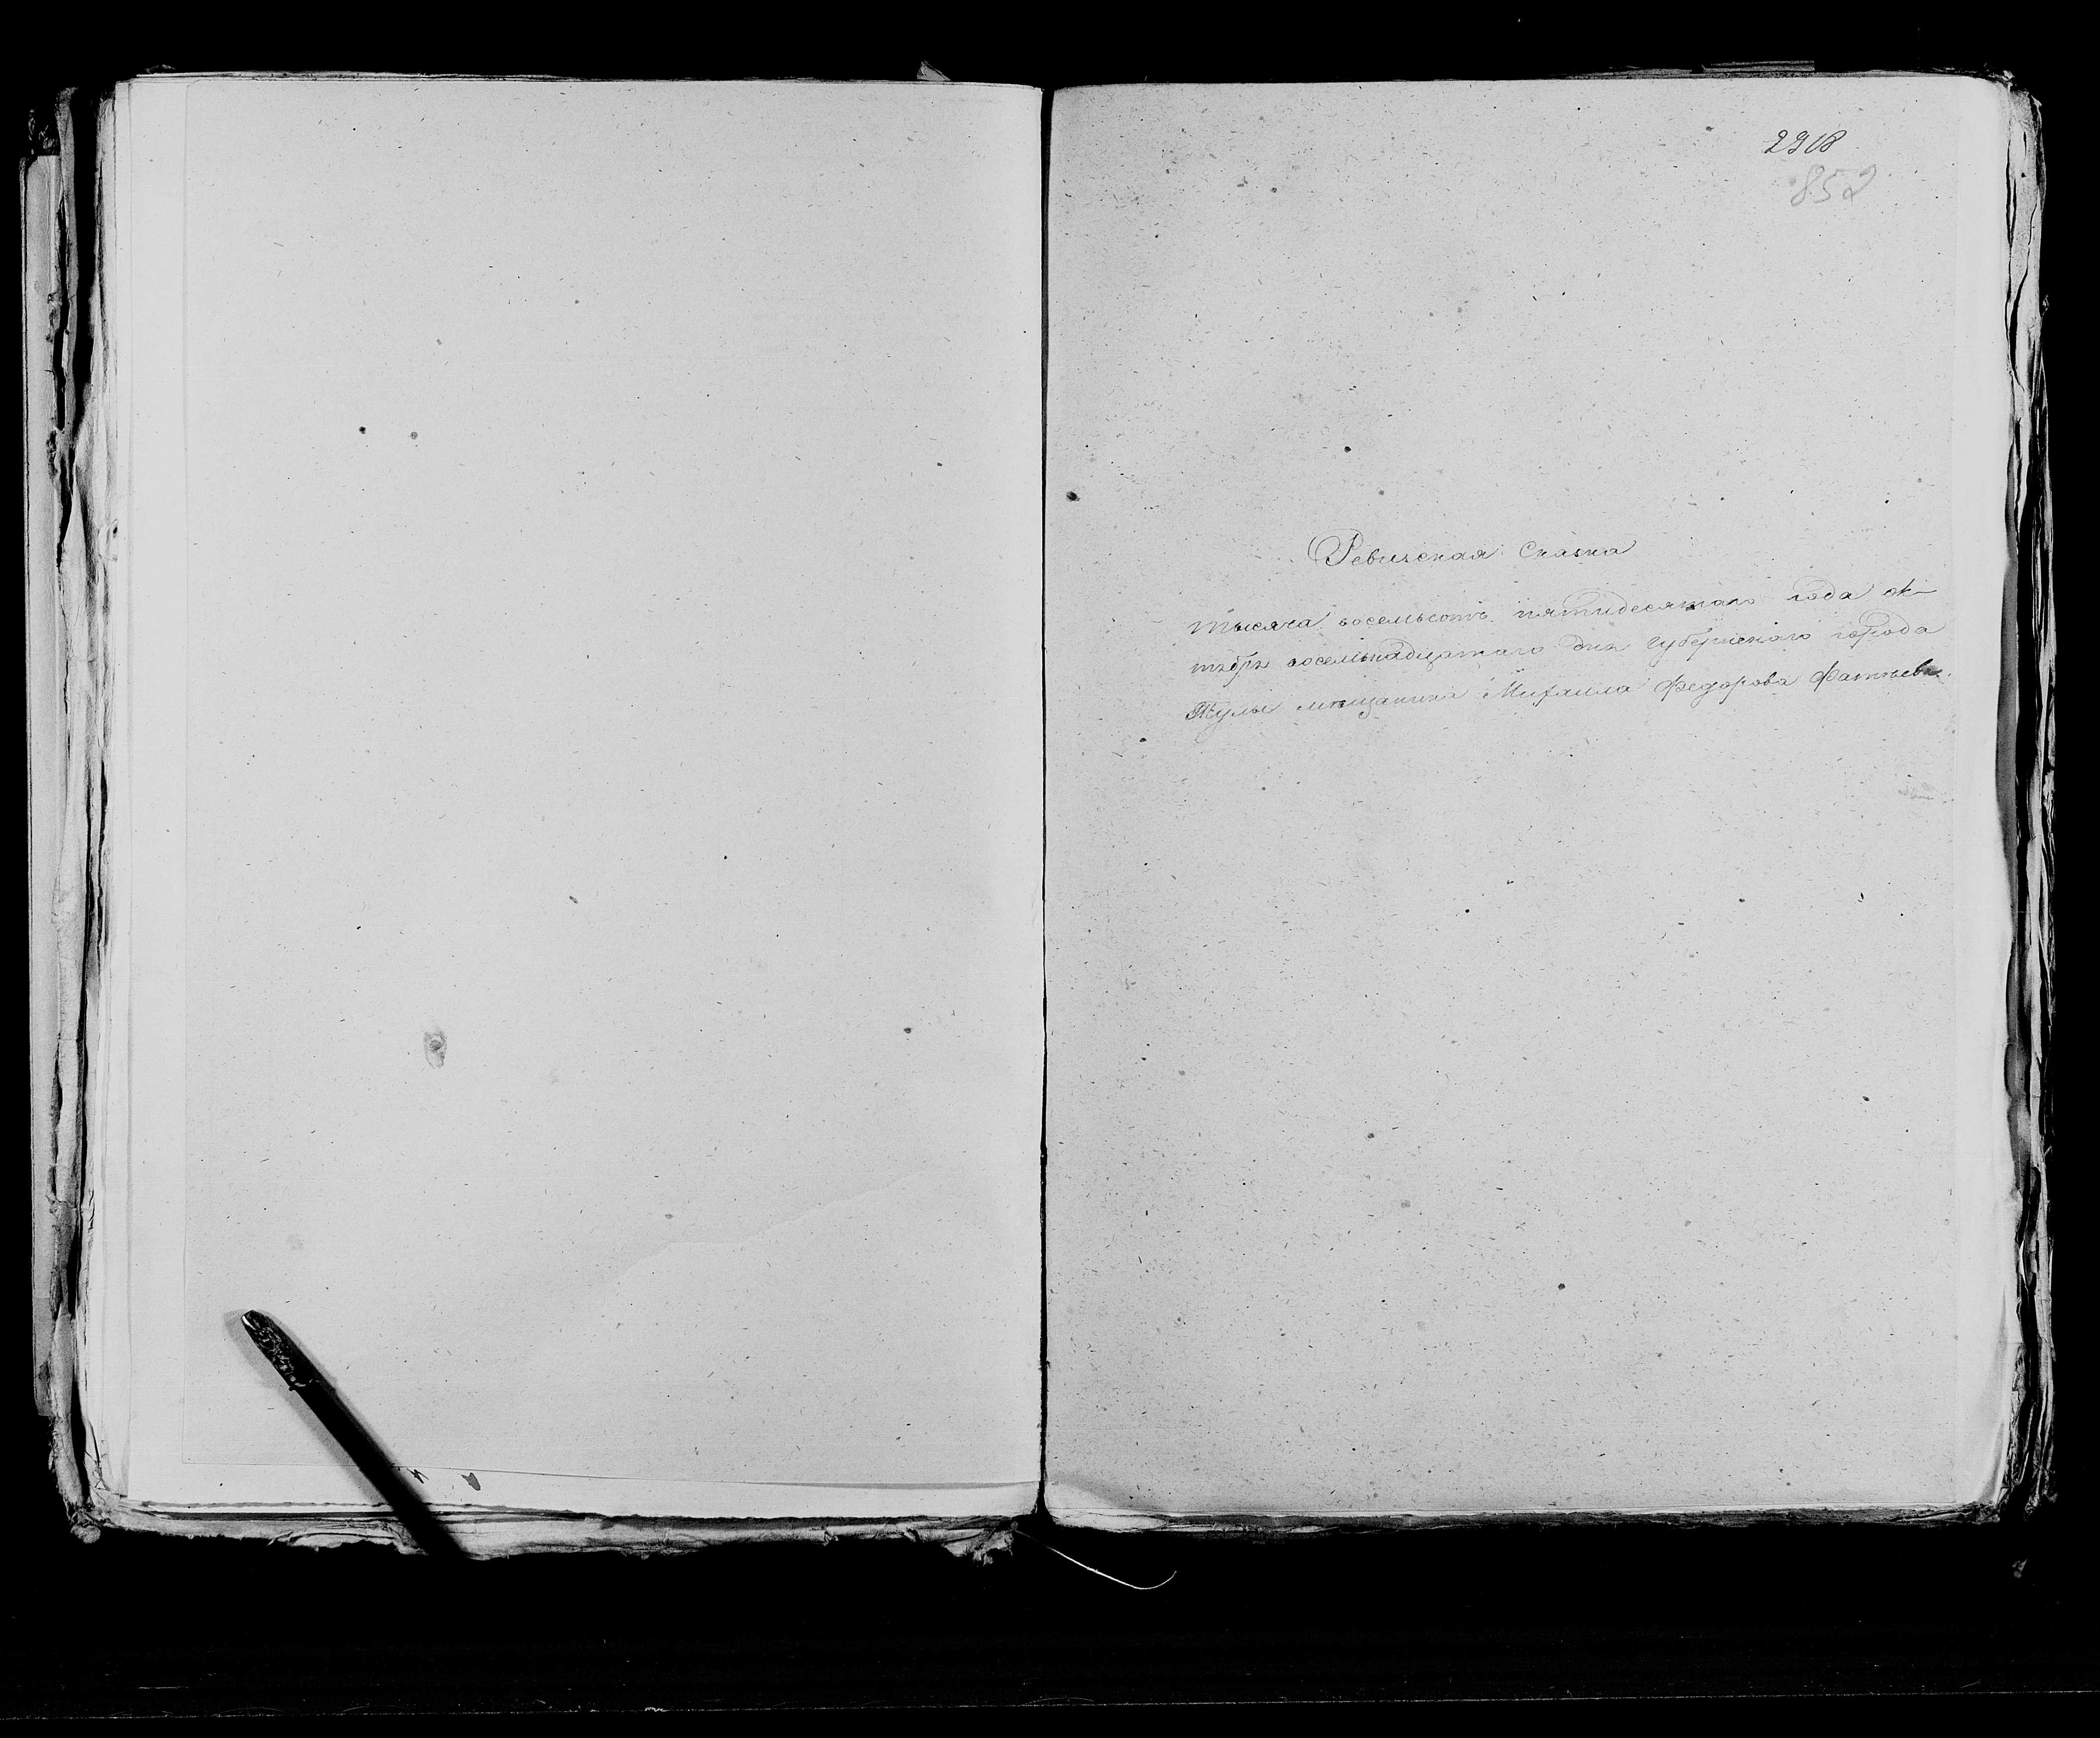 852
Ревизская Сказка
тысяча восемьсотъ пятидесятаго года ок-
тября восемьнадцатаго дня губернскаго города
Тулы мѣщанина Михаила Федорова